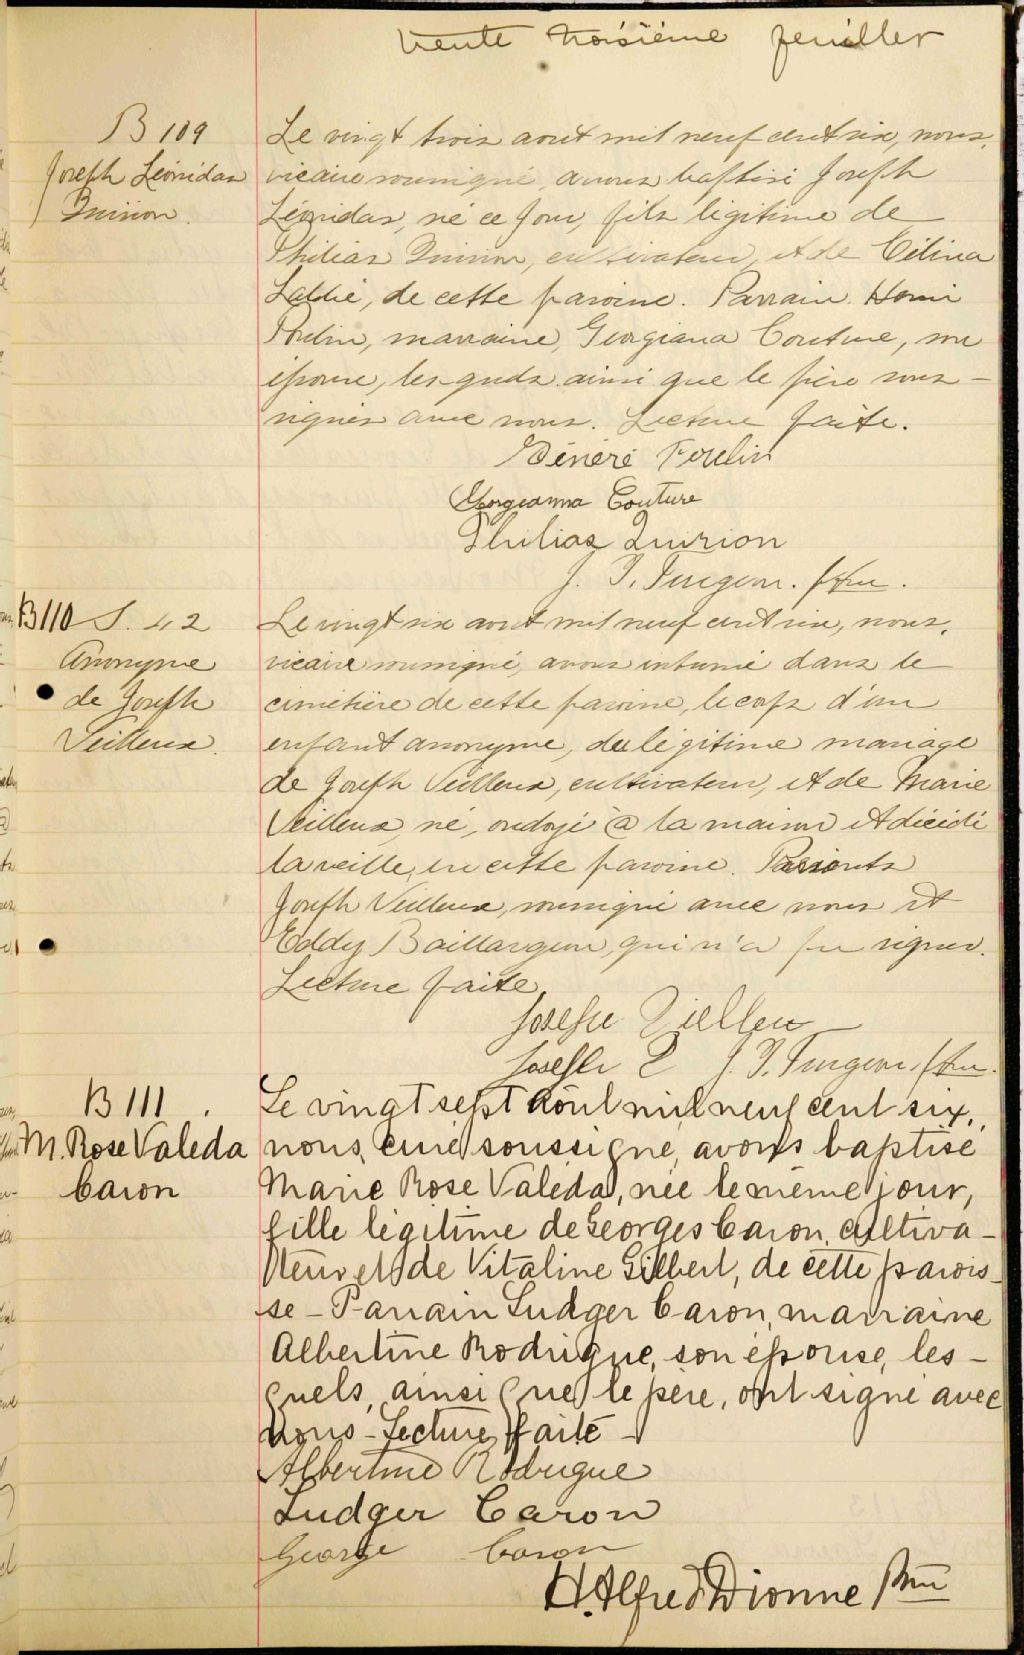 trente troisième feuillet
B 109
Joseph Léonidas
Quirion.
Le vingt trois août mil neuf cent six, nous,
vicaire soussigné, avons baptisé Joseph
Léonidas, né ce jour, fils légitime de
Philias Quirion, cultivateur, et de Célina
Labbé, de cette paroisse. Parrain Henri
Poulin, marraine, Georgiana Couture, son
épouse, lesquels ainsi que le père sous-
signés avec nous. Lecture faite.
Georgeanna Couture
Philias Quirion
J. Turgeon. Ptre.
B110 S. 42
Anonyme
de Joseph
Veilleux.
Le vingt six août mil neuf cent six, nous,
vicaire soussigné, avons inhumé dans le
cimétière de cette paroisse, le corps d'un
enfant anonyme, du légitime mariage
de Joseph Veilleux, cultivateur, et de Marie
Veilleux, né, ondoyé @ la maison et décédé
la veille, en cette paroisse. Présents
Joseph Veilleux, soussigné avec nous et
Eddy Baillargeon, qui n'a pu signer.
Lecture faite.
Joseph Vielleu
Joseph J. Turgeon, Ptre.
B 111.
M. Rose Valeda
Caron
Le vingt sept août mil neuf cent six,
nous, curé soussigné, avons baptisé
Marie Rose Valéda, née le même jour,
fille légitime de Georges Caron, cultiva-
teur et de Vitaline Gilbert, de cette parois-
se - Parrain Ludger Caron, marraine
Albertine Rodrigue, son épouse, les-
quels, ainsi que le père, ont signé avec
nous - Lecture faite -
Albertine Rodrigue
Ludger Caron
George Caron
H. Alfred Dionne Ptre